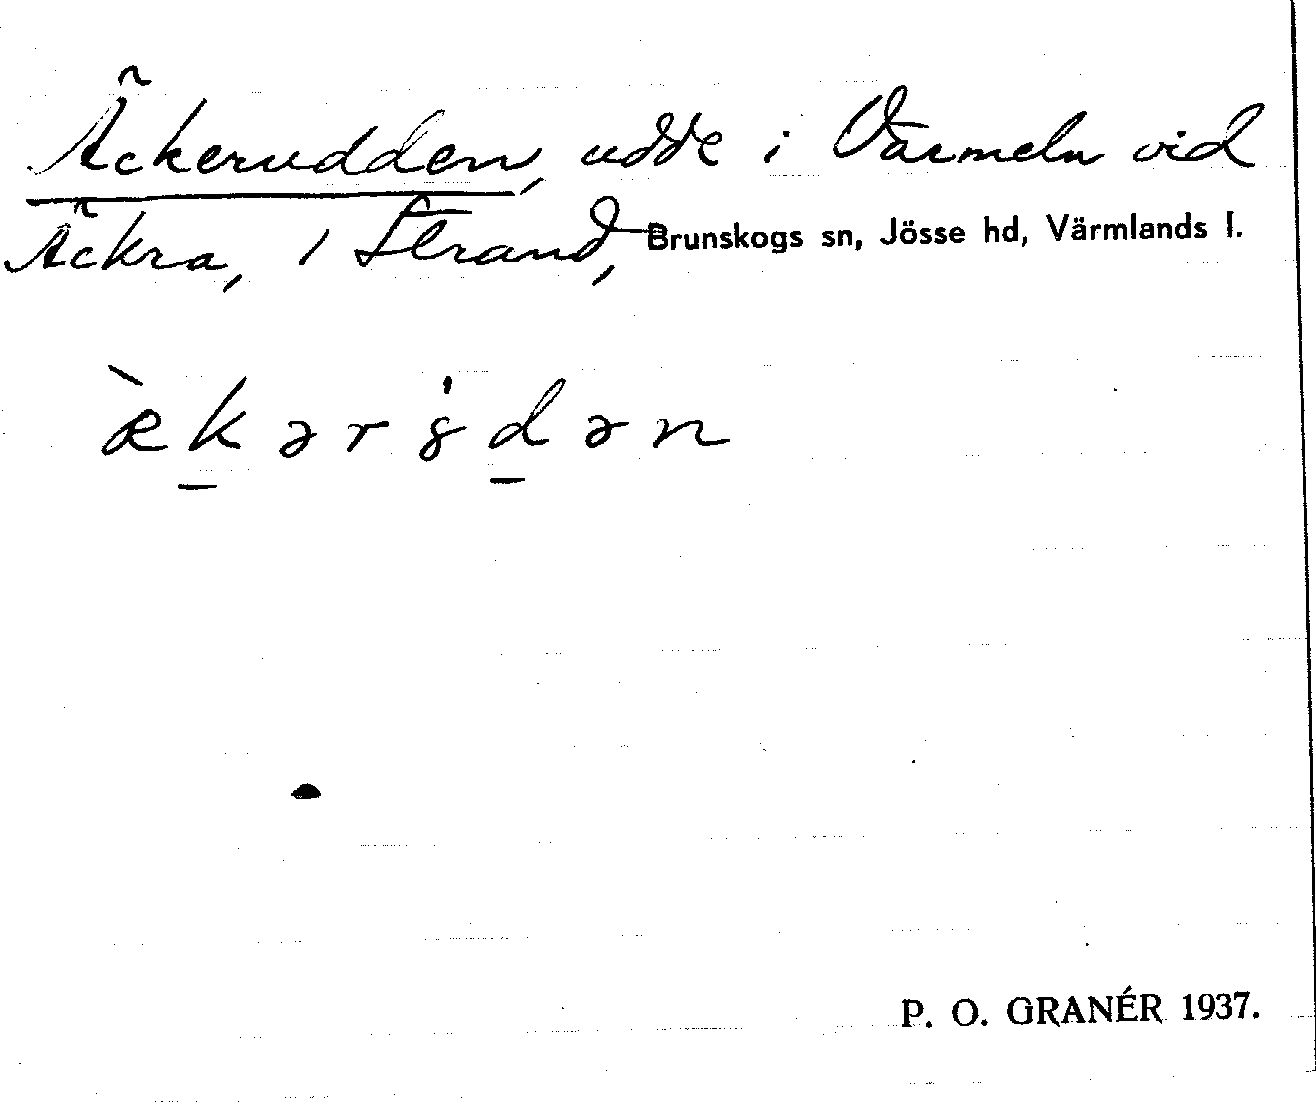 Äckerudden, udde i Värmeln vid
Äckra, i Strand, Brunskogs sn, Jösse hd, Värmlands l.
P. O. GRANÉR 1937.